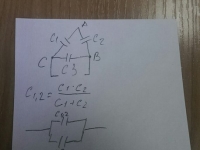 A
C₁ C₂
C B
C3
C₁,₂ = C₁·C₂ / C₁+C₂